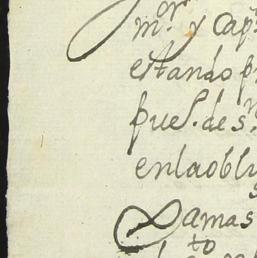 m.or y cap
estando p
pues. de s
en la obli
Damas
to